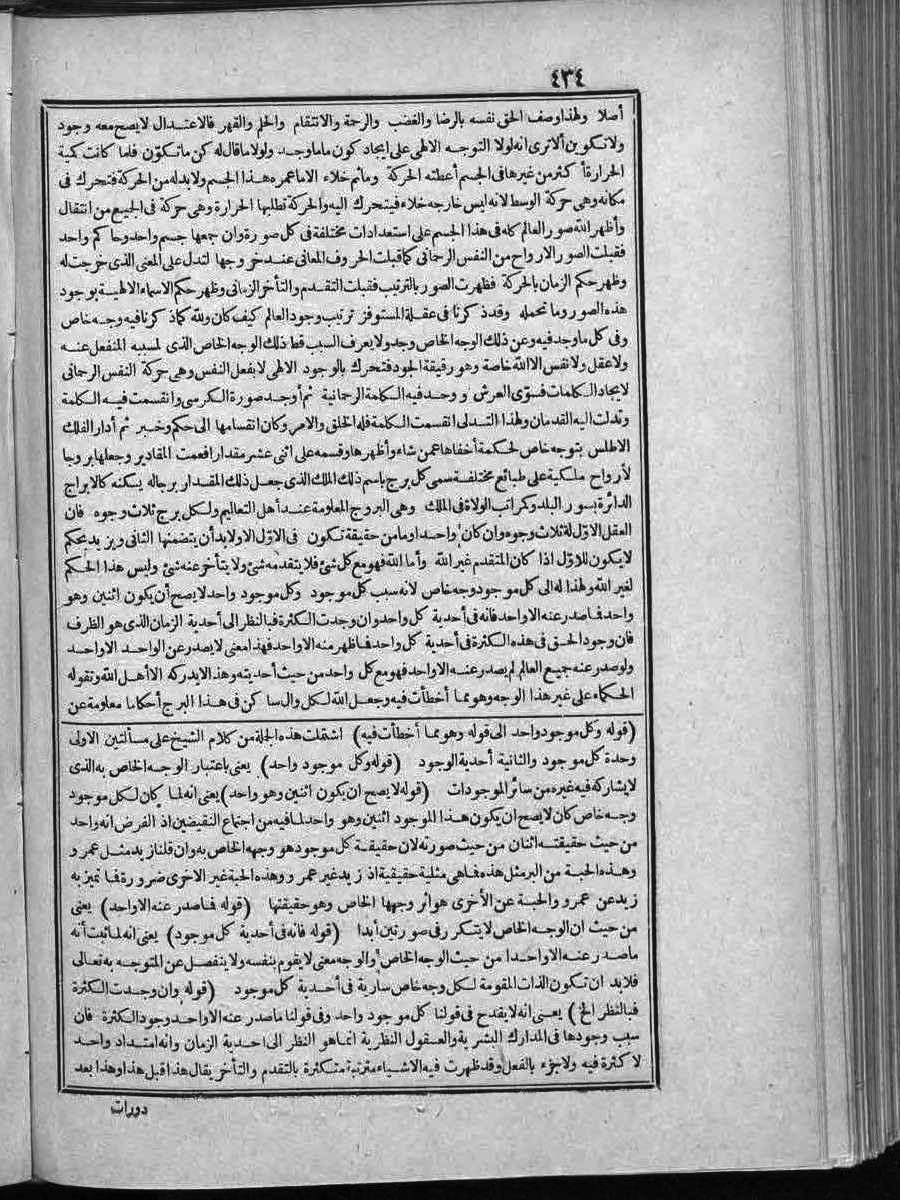 ٤٣٤
أصلا ولهذا وصف الحق نفسه بالرضا والغضب والرحمة والانتقام والحلم والقهر فالاعتدال لا يصح معه وجود
ولا تكوين ألا ترى انه لولا التوجه الالهى على ايجاد كون ما ما وجد ولولا ما قال له كن ما تكوّن فلما كانت كمية
الحرارة أكثر من غيرها فى الجسم أعطته الحركة وما ثم خلاء الا ما عمره هذا الجسم ولا بد له من الحركة فتحرك فى
مكانه وهى حركة الوسط لانه ليس خارجه خلاء فيتحرك اليه والحركة تطلبها الحرارة وهى حركة فى الجميع من انتقال
وأظهر الله صور العالم كله فى هذا الجسم على استعدادات مختلفة فى كل صورة وان جمعها جسم واحد وحاكم واحد
فقبلت الصور الارواح من النفس الرحمانى كما قبلت الحروف المعانى عند خروجها لتدل على المعنى الذى خرجت له
وظهر حكم الزمان بالحركة فظهرت الصور بالترتيب فقبلت التقدم والتأخر الزمانى وظهر حكم الاسماء الالهية بوجود
هذه الصور وما تحمله وقد ذكرنا فى عقلة المستوفز ترتيب وجود العالم كيف كان ولله كما ذكرنا فيه وجه خاص
وفى كل ما وجد فيه وعن ذلك الوجه الخاص وجد ولا يعرف السبب قط ذلك الوجه الخاص الذى لمسببه المنفعل عنه
ولا عقل ولا نفس الا الله خاصة وهو رقيقة الجود فتحرك بالوجود الالهى لا بفعل النفس وهى حركة النفس الرحمانى
لايجاد الكلمات فسوّى العرش ووحد فيه الكلمة الرحمانية ثم أوجد صورة الكرسى وانقسمت فيه الكلمة
وتدلت اليه القدمان ولهذا التدلى انقسمت الكلمة فله الخلق والامر وكان انقسامها الى حكم وخبر ثم أدار الفلك
الاطلس بتوجه خاص لحكمة أخفاها عمن شاء وأظهرها وقسمه على اثنى عشر مقدارا فعمت المقادير وجعلها بروجا
لأرواح ملكية على طبائع مختلفة سمى كل برج باسم ذلك الملك الذى جعل ذلك المقدار برجا له يسكنه كالابراج
الدائرة بسور البلد وكمراتب الولاة فى الملك وهى البروج المعلومة عند أهل التعاليم ولكل برج ثلاث وجوه فان
العقل الاوّل له ثلاث وجوه وان كان واحدا وما من حقيقة تكون فى الاوّل الا ولا بد أن يتضمنها الثانى ويزيد بحكم
لا يكون للاوّل اذا كان المتقدم غير الله وأما الله فهو مع كل شئ فلا يتقدمه شئ ولا يتأخر عنه شئ وليس هذا الحكم
لغير الله ولهذا له الى كل موجود وجه خاص لانه سبب كل موجود وكل موجود واحد لا يصح أن يكون اثنين وهو
واحد فما صدر عنه الا واحد فانه فى أحدية كل واحد وان وجدت الكثرة فبالنظر الى أحدية الزمان الذى هو الظرف
فان وجود الحق فى هذه الكثرة فى أحدية كل واحد فما ظهر منه الا واحد فهذا معنى لا يصدر عن الواحد الا واحد
ولو صدر عنه جميع العالم لم يصدر عنه الا واحد فهو مع كل واحد من حيث أحديته وهذا لا يدركه الا أهل الله وتقوله
الحكماء على غير هذا الوجه وهو مما أخطأت فيه وجعل الله لكل وال ساكن فى هذا البرج أحكاما معلومة عن
(قوله وكل موجود واحد الى قوله وهو مما أخطأت فيه) اشتملت هذه الجلة من كلام الشيخ على مسألتين الاولى
وحدة كل موجود والثانية أحدية الوجود (قوله وكل موجود واحد) يعنى باعتبار الوجه الخاص به الذى
لا يشاركه فيه غيره من سائر الموجودات (قوله لا يصح ان يكون اثنين وهو واحد) يعنى انه لما كان لكل موجود
وجه خاص كان لا يصح ان يكون هذا الموجود اثنين وهو واحد لما فيه من اجتماع النقيضين اذ الفرض انه واحد
من حيث حقيقته اثنان من حيث صورته لان حقيقة كل موجود هو وجهه الخاص به وان قلنا زيد مثل عمرو
وهذه الحبة من البر مثل هذه فما هى مثلية حقيقية اذ زيد غير عمرو وهذه الحبة غير الاخرى ضرورة فما تميز به
زيد عن عمرو والحبة عن الأخرى هو اثر وجهها الخاص وهو حقيقتها (قوله فما صدر عنه الا واحد) يعنى
من حيث ان الوجه الخاص لا يتكرر فى صورتين أبدا (قوله فانه فى أحدية كل موجود) يعنى انه لما ثبت أنه
ما صدر عنه الا واحدا من حيث الوجه الخاص والوجه معنى لا يقوم بنفسه ولا ينفصل عن المتوجه به تعالى
فلا بد ان تكون الذات المقومة لكل وجه خاص سارية فى أحدية كل موجود (قوله وان وجدت الكثرة
فبالنظر الخ) يعنى انه لا يقدح فى قولنا كل موجود واحد وفى قولنا ما صدر عنه الا واحد وجود الكثرة فان
سبب وجودها فى المدارك البشرية والعقول النظرية انما هو النظر الى احدية الزمان وانه امتداد واحد
لا كثرة فيه ولا جزء بالفعل وقد ظهرت فيه الاشياء مترتبة متكثرة بالتقدم والتأخر يقال هذا قبل هذا وهذا بعد
دورات